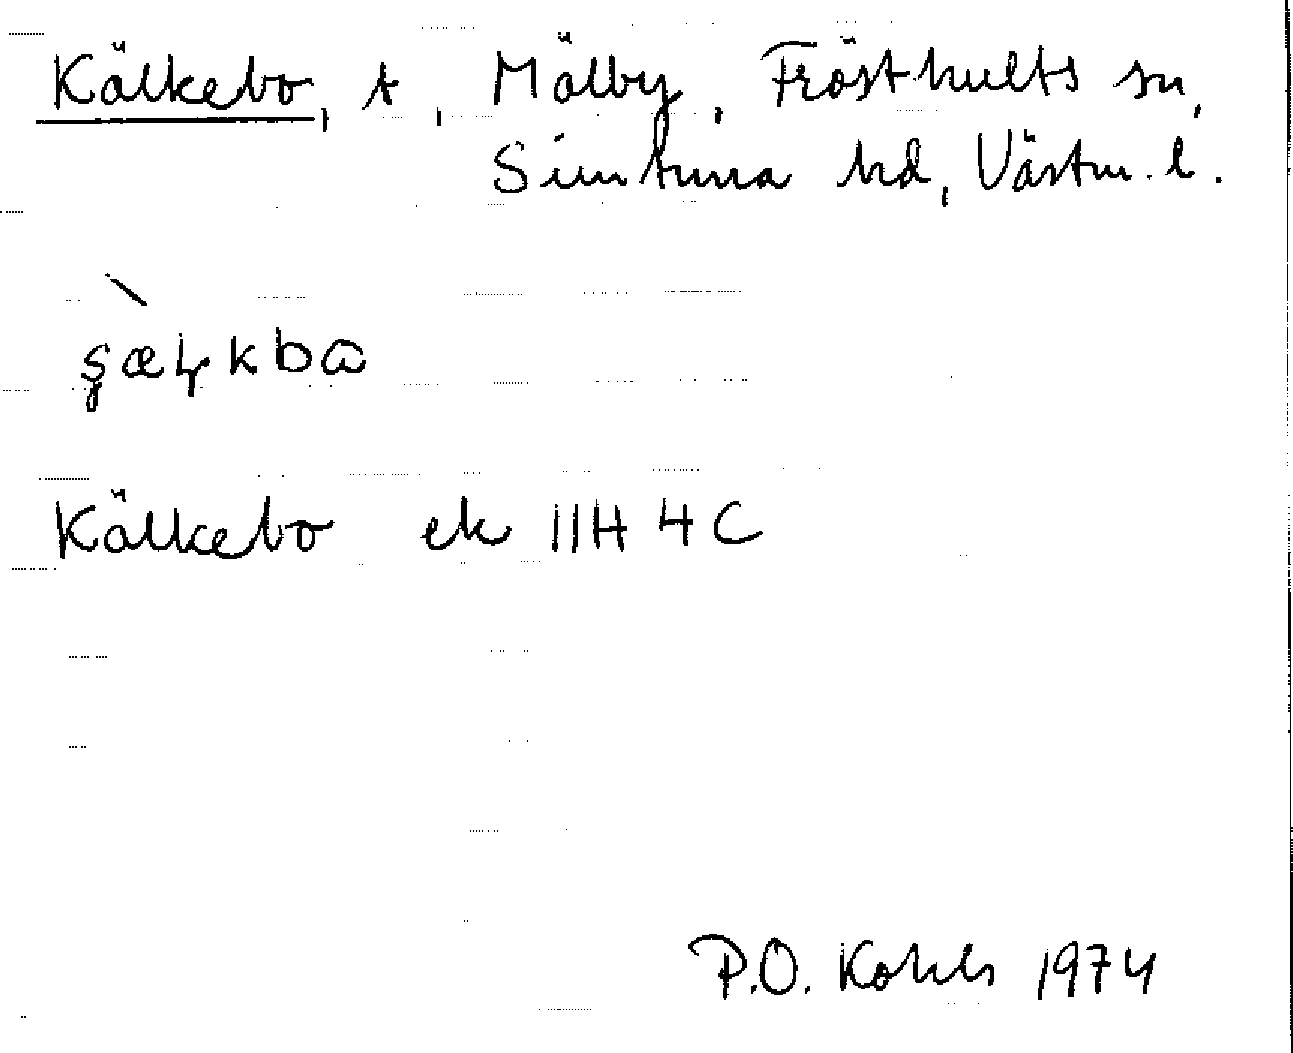 Kälkebo, t, Mälby, Frösthults sn,
Simtuna hd, Västm. l.
Kälkebo ek 11H 4C
P.O. Kohls 1974